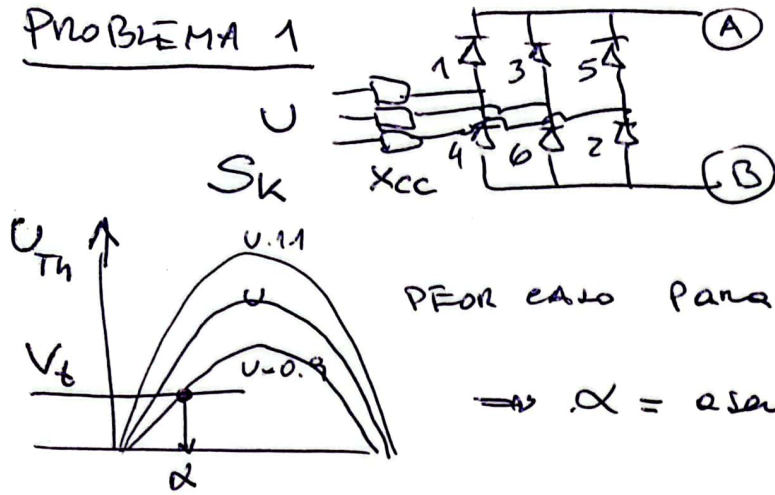 PROBLEMA 1
1 3 5 A
U
4 6 2 B
SK XCC
UTh
U·1.1
U
U·0.9
Vt
α
PEOR CASO para
⇒ α = asen